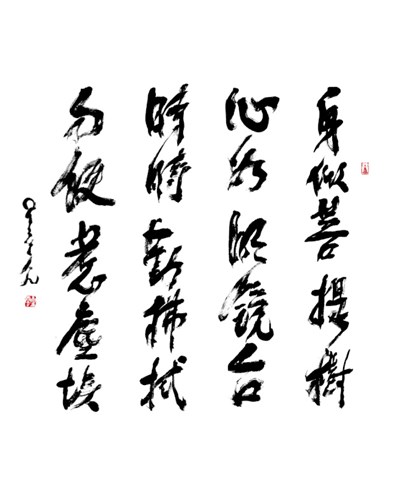 身似菩提樹
心如明鏡台
時時勤拂拭
勿使惹塵埃